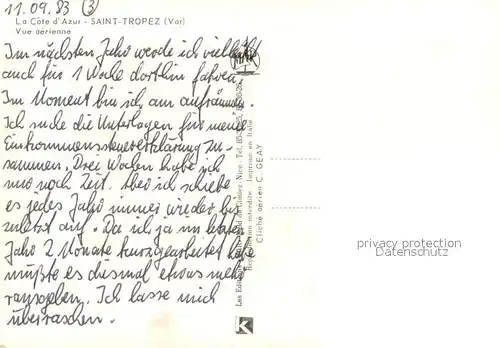 11.09.83 (3)
La Côte d'Azur - SAINT-TROPEZ (Var)
Vue aérienne
Im nächsten Jahr werde ich vielleicht
auch für 1 Woche dorthin fahren.
Im Moment bin ich am aufräumen.
Ich suche die Unterlagen für meine
Einkommenssteuererklärung zu-
sammen. Drei Wochen habe ich
nur noch Zeit. Aber ich schiebe
es jedes Jahr immer wieder bis
zuletzt auf. Da ich ja im letzten
Jahr 2 Monate kurzgearbeitet habe
müßte es diesmal etwas mehr
rausgeben. Ich lasse mich
überraschen.
Reproduction interdite - Imprimé en Italie
Cliché aérien C. GEAY
K
privacy protection
Datenschutz